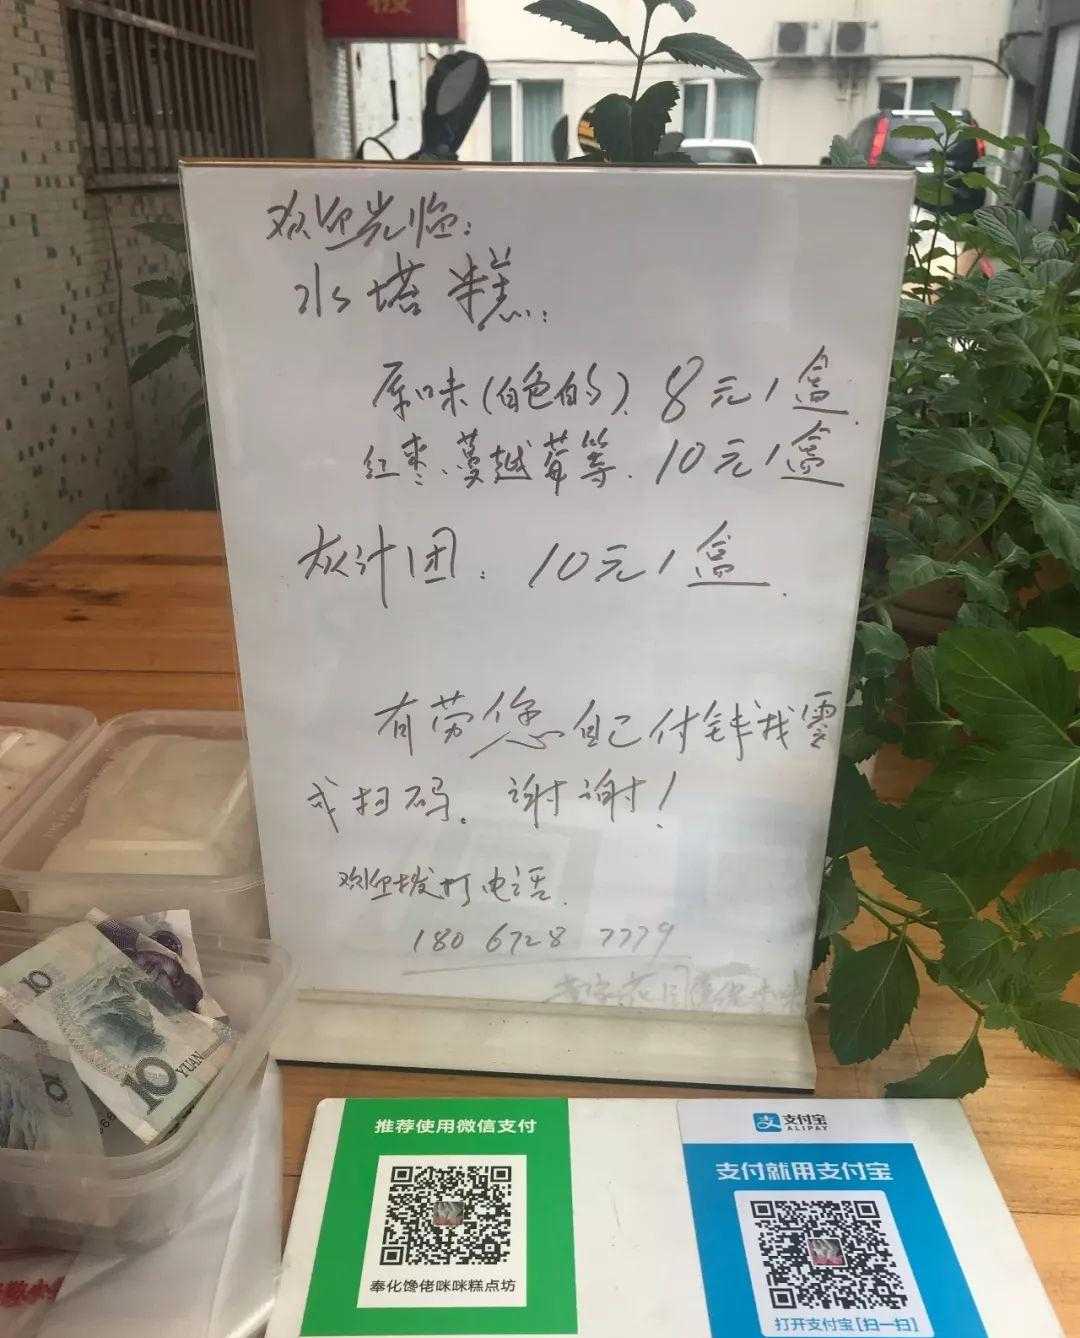 欢迎光临：
水塔糕：
原味(白色的)、8元1盒
红枣、蔓越莓等、10元1盒
灰汁团：10元1盒
有劳您自己付钱找零
或扫码、谢谢！
欢迎拨打电话
180 6728 7779
推荐使用微信支付
奉化馋佬咪咪糕点坊
支付宝
ALIPAY
支付就用支付宝
打开支付宝[扫一扫]
10
10
YUAN